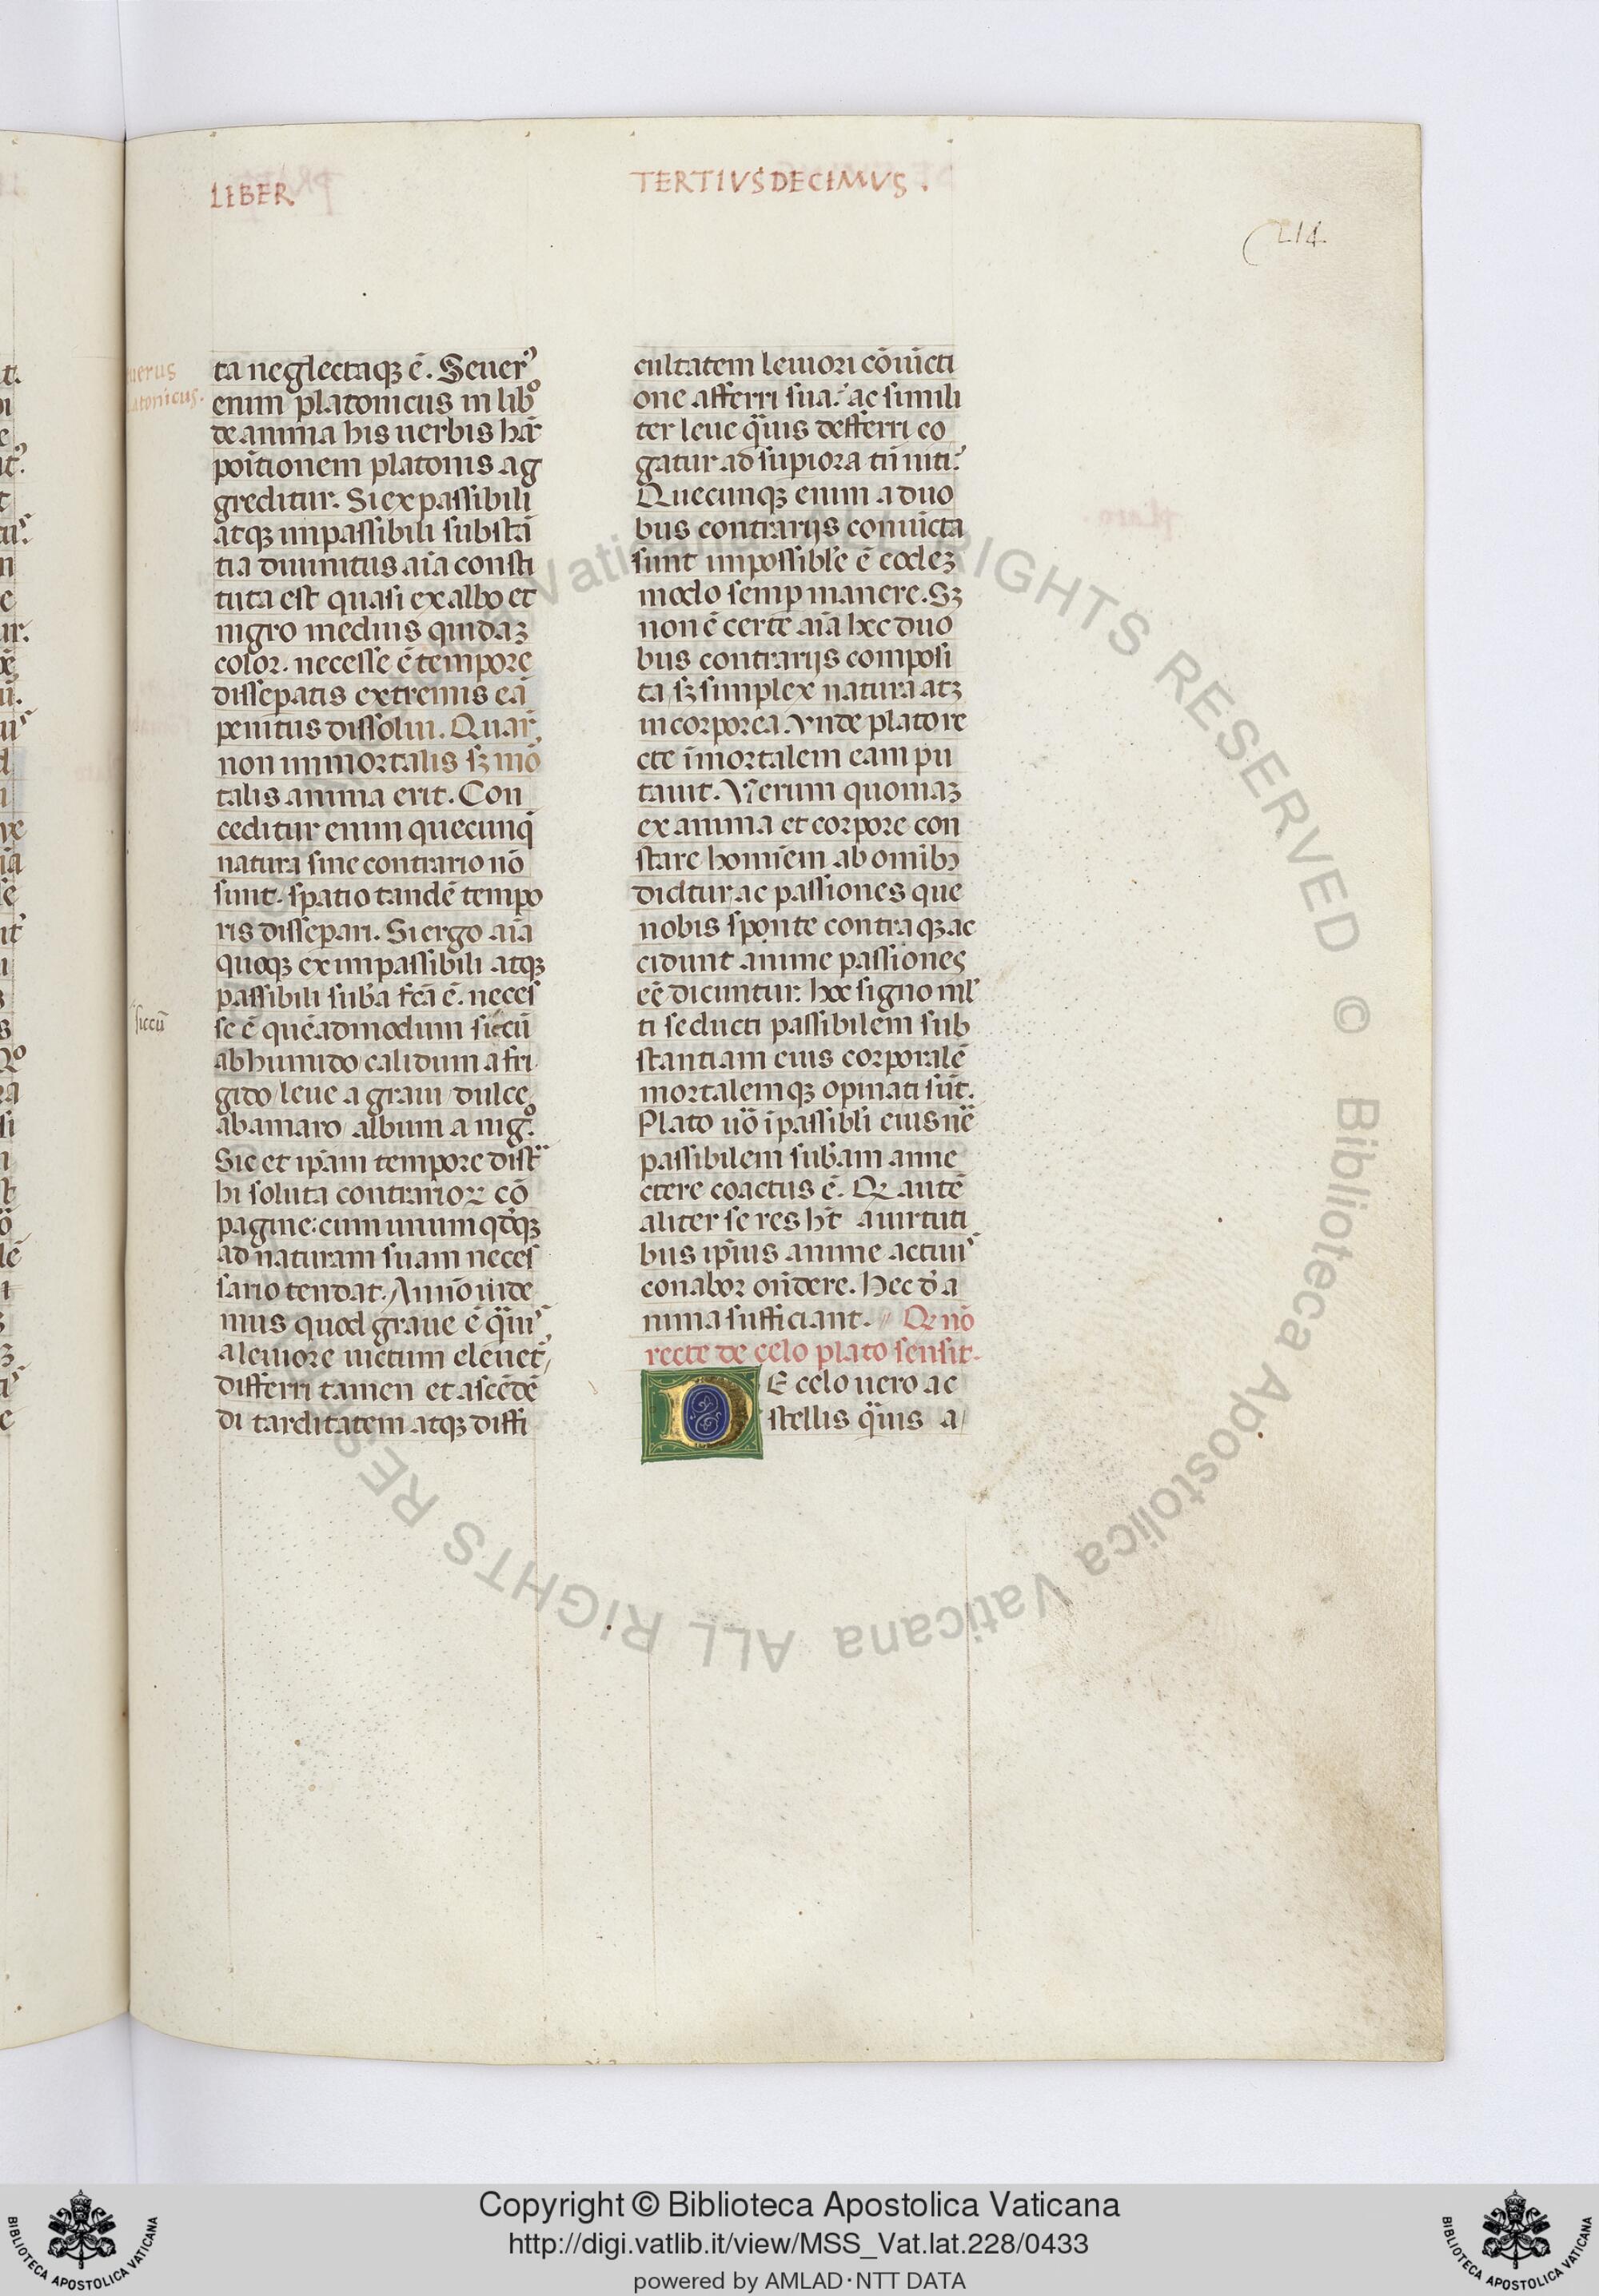 LIBER
TERTIVSDECIMVS.
214
uerus
atonicus.
ta neglectaqꝫ ē. Seuerꝰ
enim platonicus in libº
de anima his uerbis hāc
poītionem platonis ag
greditur. Si ex passibili
atqꝫ impassibili substā
tia diuinitus aīa consti
tuta est quasi ex albo et
nigro medius quidaꝫ
color. necesse ē tempore
dissepatis extremis eā
penitus dissolui. Quar̄
non immortalis sꝫ mō
talis anima erit. Con
ceditur enim quecunq̄
natura sine contrario nō
sunt. spatio tandē tempo
ris dissepari. Si ergo aīa
quoqꝫ ex impassibili atqꝫ
passibili suba fcā ē. neces
siccū
se ē quēadmodum siccū
ab humido calidum a fri
gido leue a graui dulce
ab amaro album a nigº
Sic et ipam tempore dist
hi soluta contrarioꝝ cō
pagine: cum unum qdqꝫ
ad naturam suam neces
sario tendat. Annō uide
mus quod graue ē q̄uis
a leuiore uictum eleuet̄
differri tamen et ascēdē
di tarditatem atqꝫ diffi
cultatem leuiori cōiūcti
one afferri sua: ac simili
ter leue q̄uis defferri co
gatur ad supiora tn̄ niti:
Quecunqꝫ enim a duo
bus contrarijs coniūcta
sunt impossible ē eodeꝫ
modo semp manere. Sꝫ
non ē certe aīa hec duo
bus contrarijs composi
ta sꝫ simplex natura atꝫ
incorporea. Vnde plato re
cte īmortalem eam pu
tauit. Verum quoniaꝫ
ex anima et corpore con
stare homiem ab omībꝫ
dicitur, ac passiones que
nobis sponte contraqꝫ ac
cidunt anime passiones
eē dicuntur: hoc signo ml
ti seducti passibilem sub
stantiam eius corporalē
mortalemqꝫ opinati sūt.
Plato uō īpassibli eius nē
passibilem subam anne
ctere coactus ē. Qꝫ autē
aliter se res hꝫ a uirtuti
bus ipius anime actuuꝫ
conabor ondere. Hec d a
nima sufficiant. Qꝫ nō
recte de celo plato sensit.
DE celo uero ac
stellis q̄uis a
© Biblioteca Apostolica Vaticana ALL RIGHTS RESERVED
Copyright © Biblioteca Apostolica Vaticana
http://digi.vatlib.it/view/MSS_Vat.lat.228/0433
powered by AMLAD·NTT DATA
BIBLIOTECA APOSTOLICA VATICANA
BIBLIOTECA APOSTOLICA VATICANA